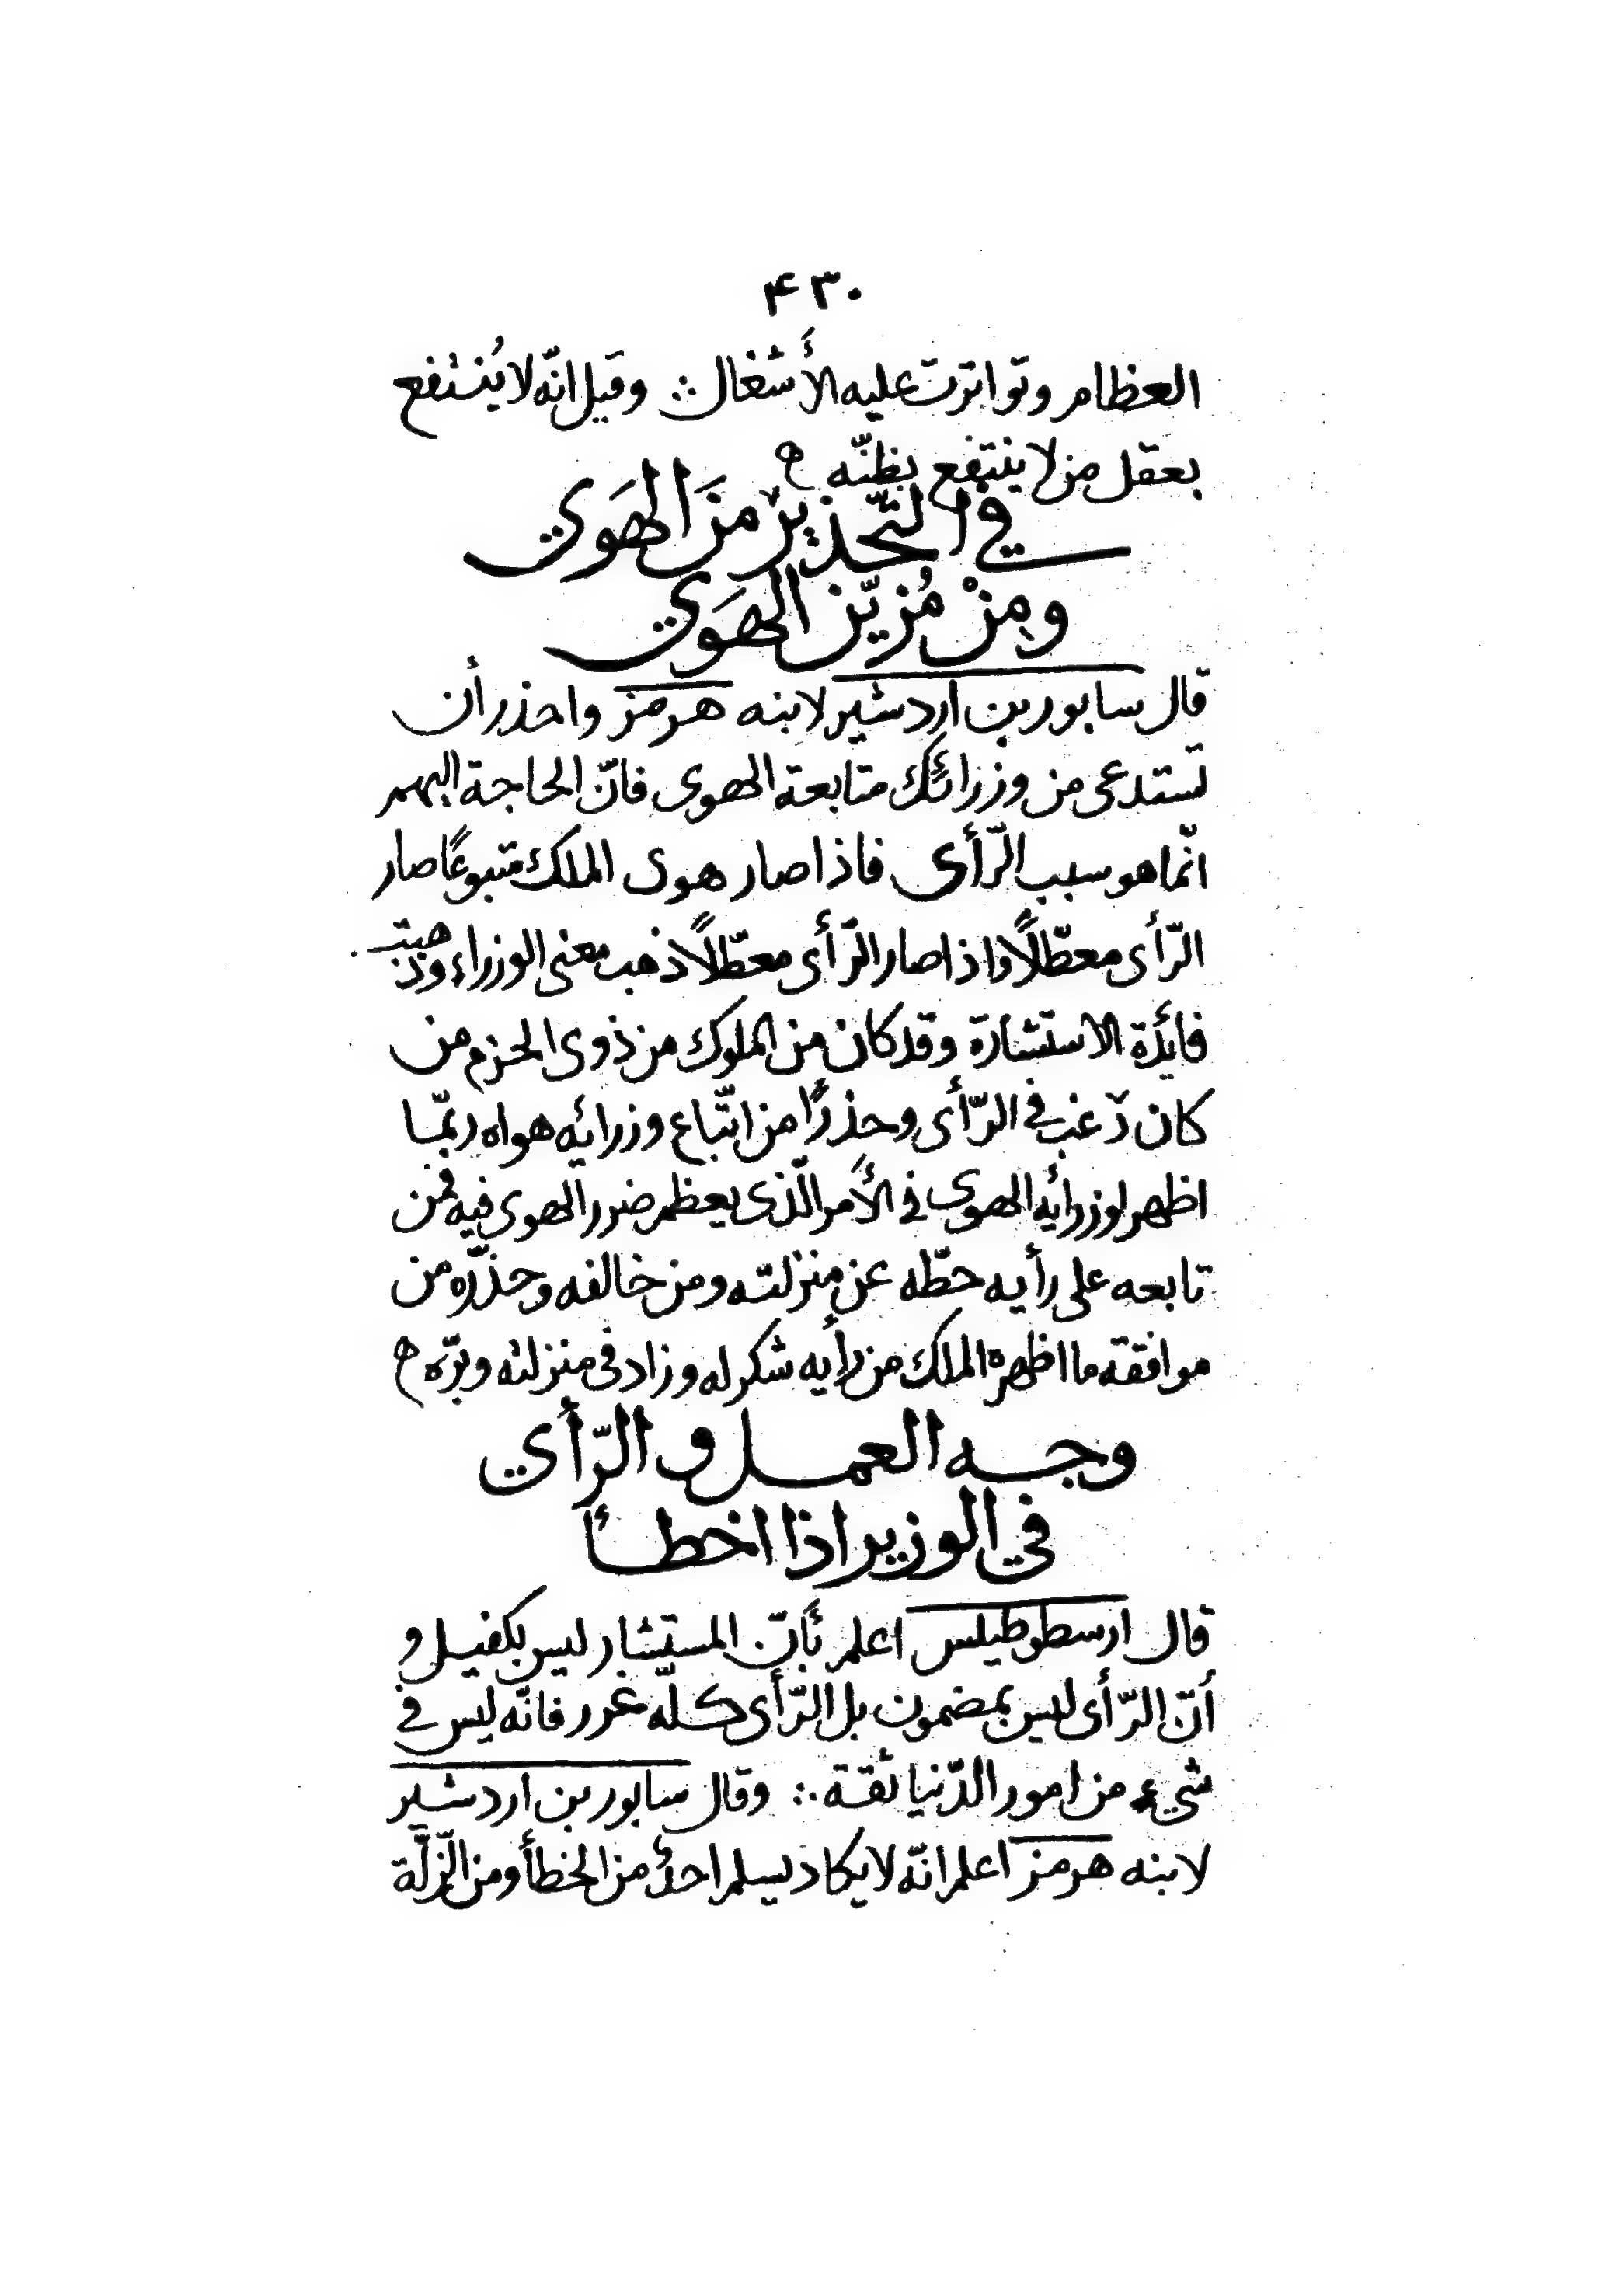 ۴۳۰
العظام وتواترت عليه الأشغال ∴ وقيل انّه لا يُنتفع
بعقل من لا ينتفع بظنّه ه
في التّحذير منَ الهَوي
ومِنْ مُزيّن الهَوي
قال سابور بن اردشير لابنه هرمز واحذر أن
تستدعى من وزرائك متابعة الهوى فانّ الحاجة اليهم
انّما هو سبب الرّأى فاذا صار هوى الملك متبوعًا صار
الرّأى معطّلًا واذا صار الرّأى معطّلًا ذهب معنى الوزراء وذهبت
فائدة الاستشارة وقد كان من الملوك من ذوى الحزم من
كان رغب فى الرّأى وحذرًا من اتّباع وزرائه هواه ربّما
اظهر لوزرائه الهوى فى الأمر الّذى يعظم ضرر الهوى فيه فمن
تابعه على رأيه حطّه عن منزلته ومن خالفه وحذّره من
موافقته ما اظهره الملك من رأيه شكر له وزاد فى منزلته وبرّه ه
وجه العمل و الرّأي
في الوزير اذا اخطأ
قال ارسطوطيلس اعلم بأنّ المستشار ليس بكفيل و
أنّ الرّأى ليس بمضمون بل الرّأى كلّه غرر فانّه ليس فى
شيء من امور الدّنيا ثقة ∴ وقال سابور بن اردشير
لابنه هرمز اعلم انّه لا يكاد يسلم احدٌ من الخطأ ومن الزلّة